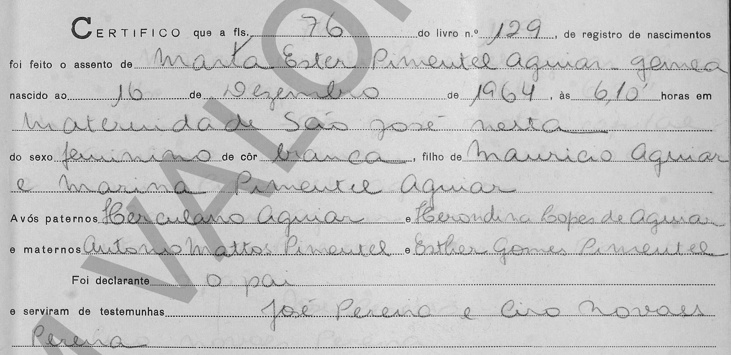 CERTIFICO que a fls. 76 do livro n.º 129, de registro de nascimentos
foi feito o assento de Marta Ester Pimentel Aguiar gemea
nascido ao 16 de Dezembro de 1964, às 6,10 horas em
Maternidade São José nesta
do sexo feminino de côr branca, filho de Mauricio Aguiar
e Marina Pimentel Aguiar
Avós paternos Herculano Aguiar e Herondina Lopes de Aguiar
e maternos Antonio Mattos Pimentel e Esther Gomes Pimentel
Foi declarante o pai
e serviram de testemunhas José Pereira e Ciro Novaes
Pereira
VALOR